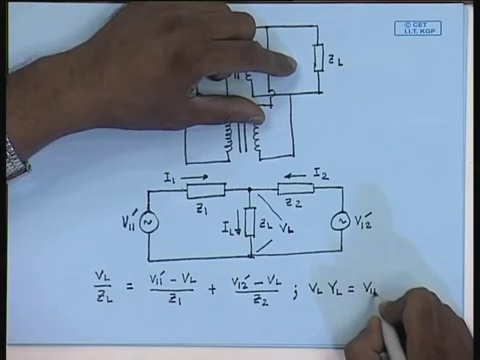 © CET
I.I.T. KGP
Z_L
I₁ → ← I₂
Z₁ Z₂
V₁₁′ I_L Z_L V_L V₁₂′
V_L/Z_L = (V₁₁′ − V_L)/Z₁ + (V₁₂′ − V_L)/Z₂ ; V_L Y_L = V₁₁